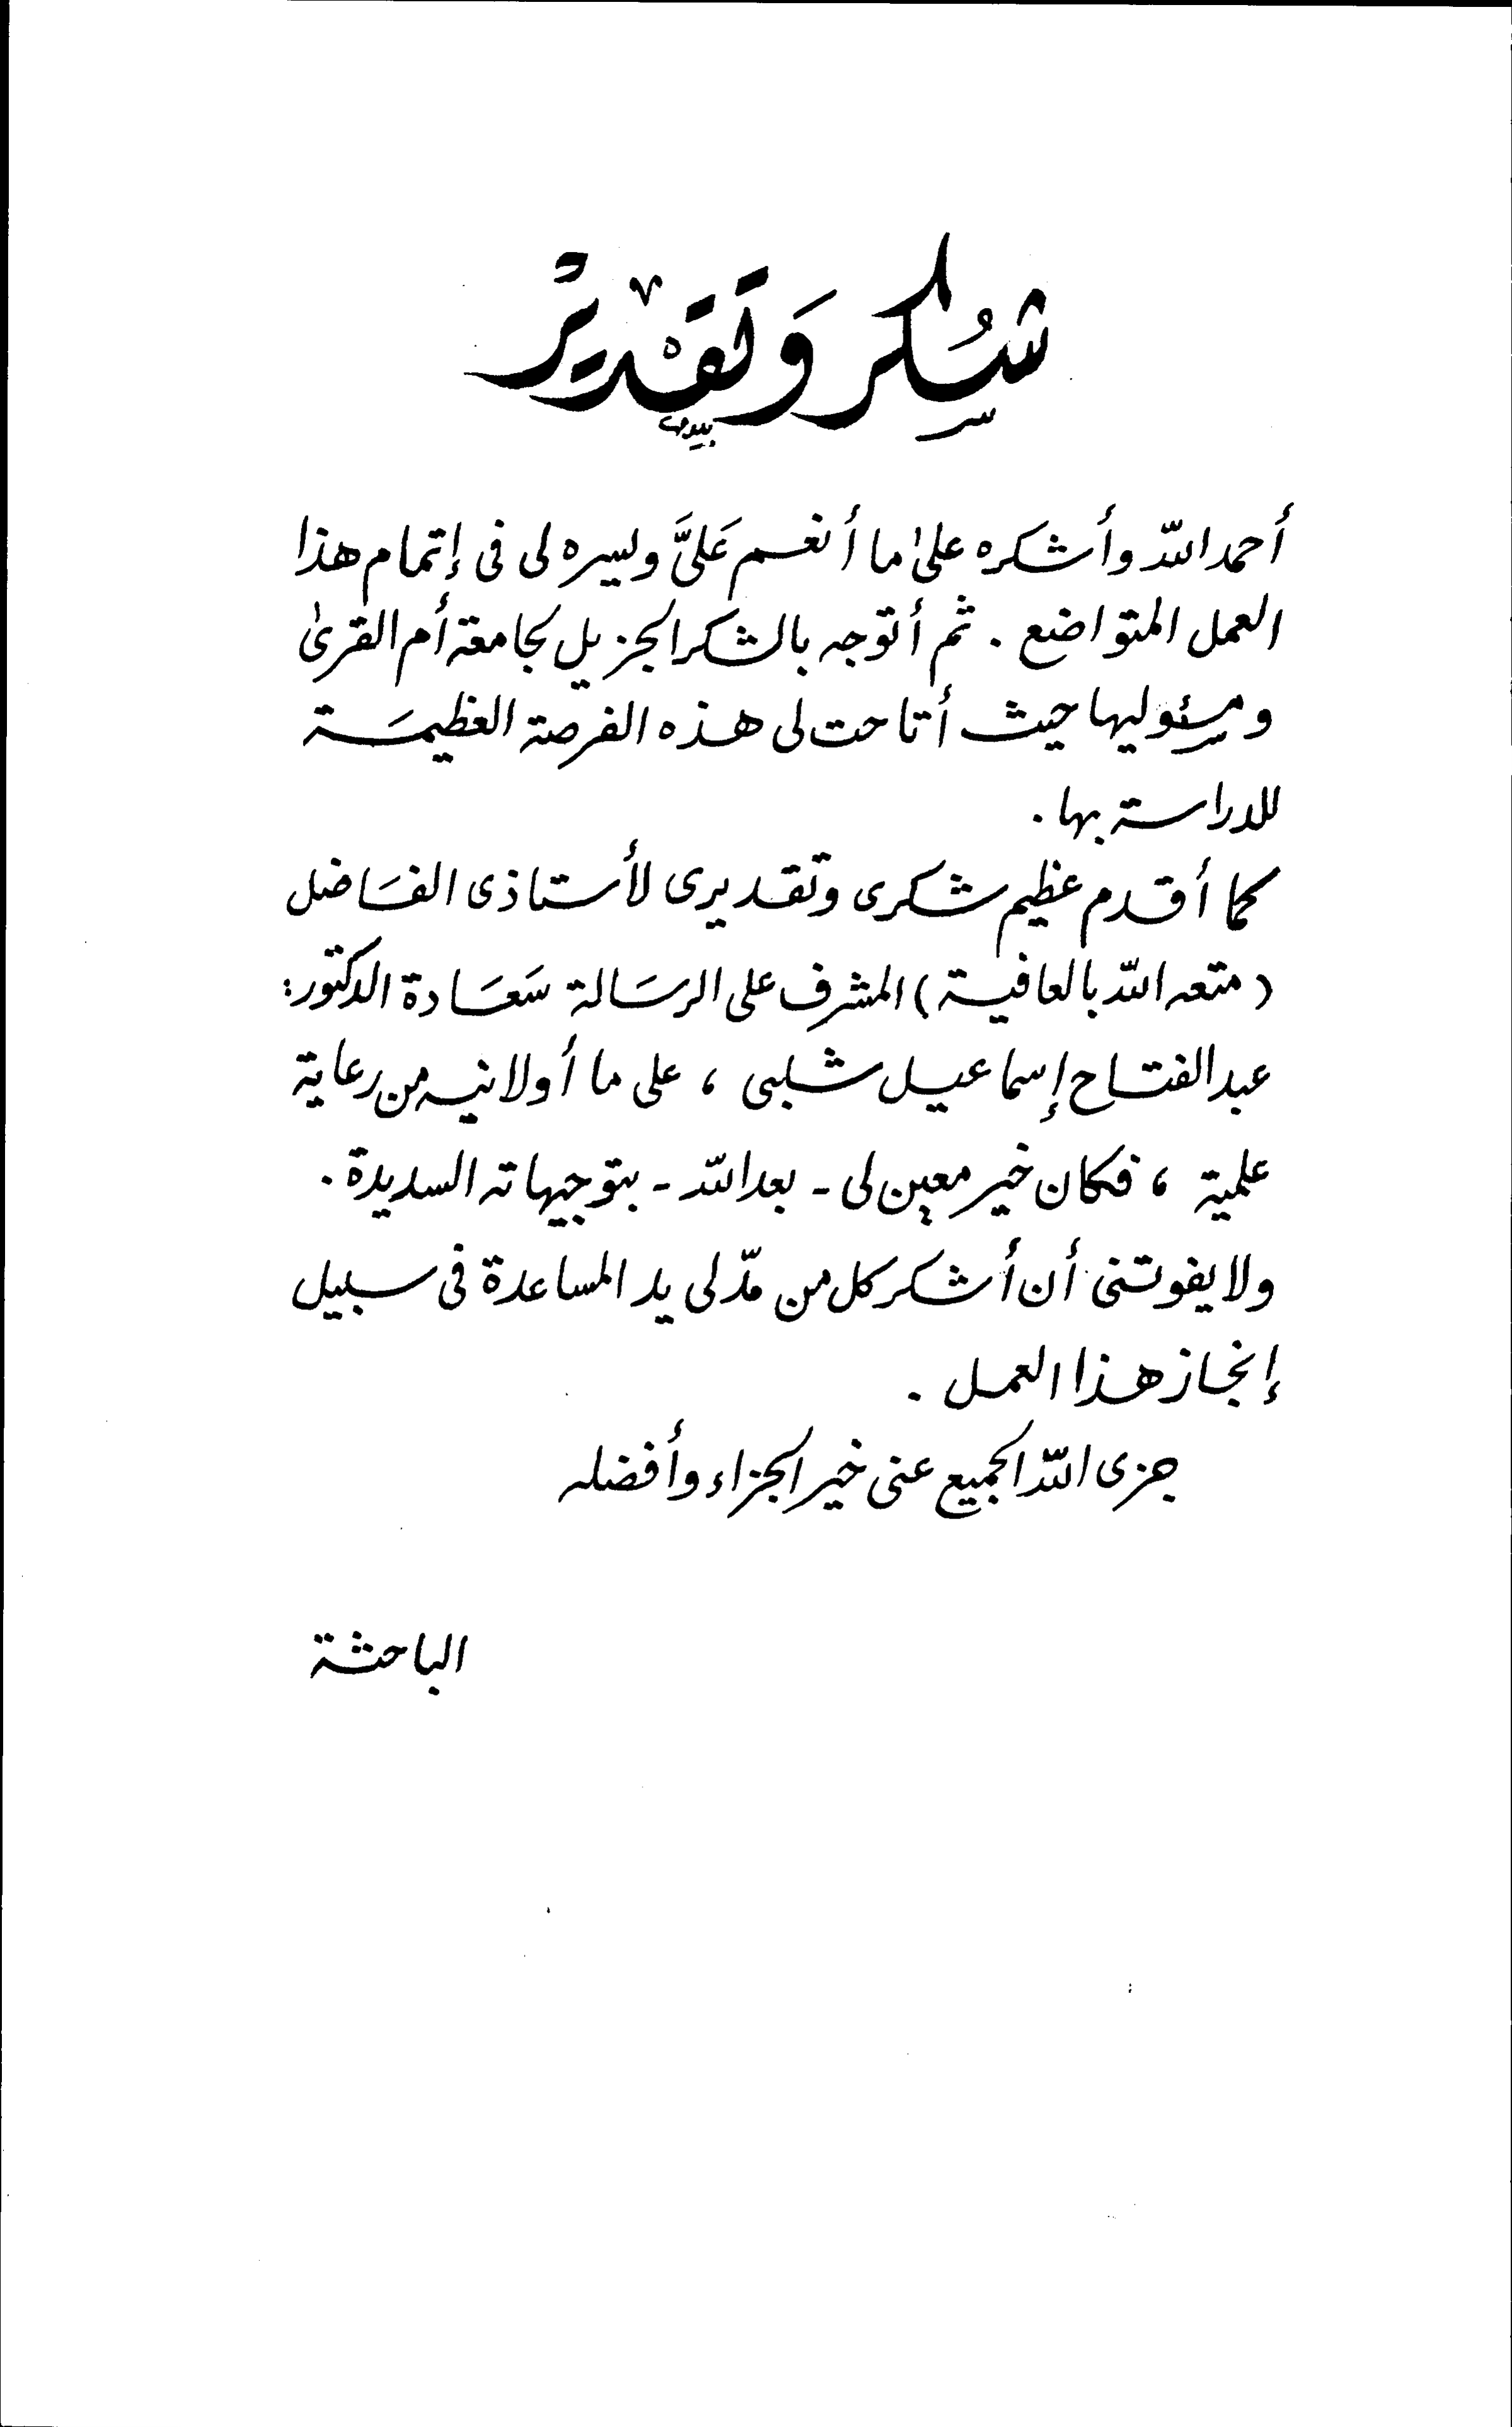 شُكر وَتَقْدير
أحمد اللّه وأشكره علىٰ ما أنعم عَليَّ ويسره لى فى إتمام هذا
العمل المتواضع . ثم أتوجه بالشكر الجزيل لجامعة أم القرىٰ
ومسئوليها حيث أتاحت لى هذه الفرصة العظيمَة
للدراسة بها .
كما أقدم عظيم شكرى وتقديرى لأستاذى الفَاضل
( متعه اللّه بالعافية ) المشرف على الرسَالة سَعَادة الدكتور :
عبد الفتاح إسماعيل شلبى ، على ما أولانيه من رعاية
علمية ، فكان خير معين لى - بعد اللّه - بتوجيهاته السديدة .
ولا يفوتنى أن أشكر كل من مدّ لى يد المساعدة فى سبيل
إنجاز هذا العمل .
جزى اللّه الجميع عنى خير الجزاء وأفضله
الباحثة